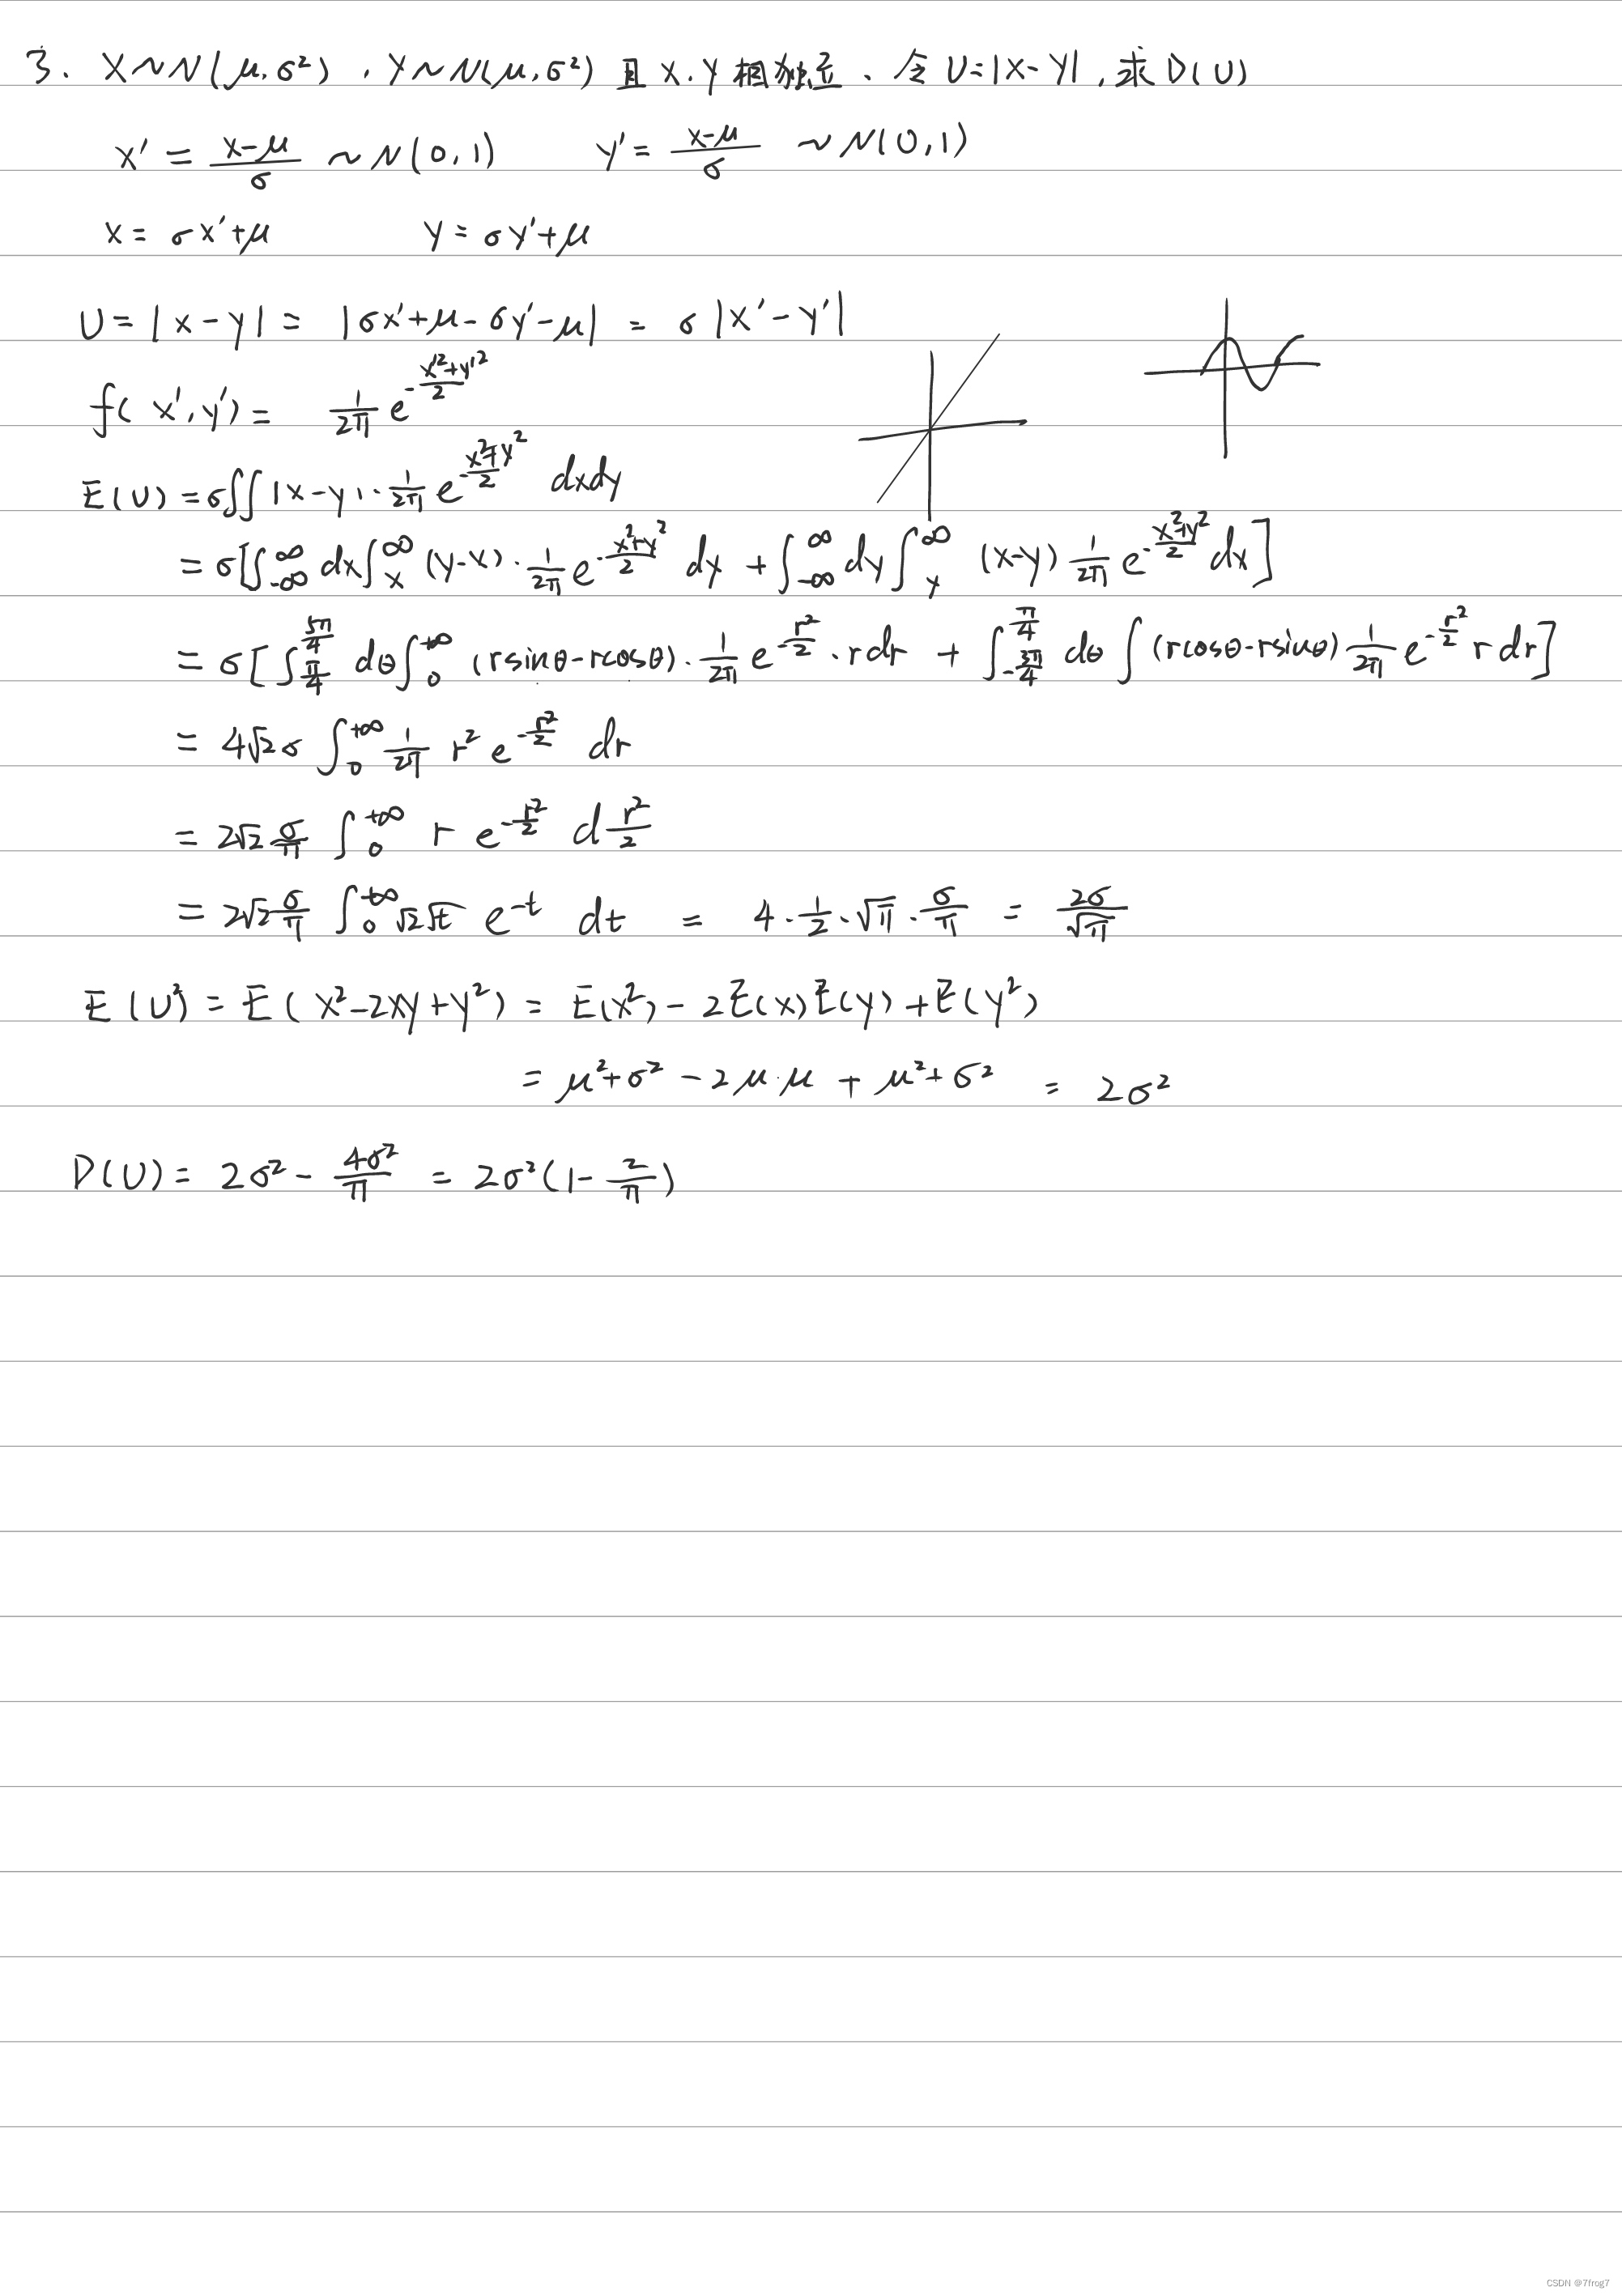 3. X~N(μ,σ²),Y~N(μ,σ²)且X.Y相独立、令U=|X-Y|,求D(U)
x' = \frac{x-μ}{σ} ~ N(0,1) y' = \frac{x-μ}{σ} ~ N(0,1)
x = σx'+μ y = σy'+μ
U = |x-y| = |σx'+μ-σy'-μ| = σ|x'-y'|
f(x',y') = \frac{1}{2π} e^{-\frac{x'^2+y'^2}{2}}
E(U) = σ∬|x-y|·\frac{1}{2π} e^{-\frac{x^2+y^2}{2}} dxdy
= σ[∫_{-∞}^{∞} dx ∫_{x}^{∞} (y-x)·\frac{1}{2π} e^{-\frac{x^2+y^2}{2}} dy + ∫_{-∞}^{∞} dy ∫_{y}^{∞} (x-y) \frac{1}{2π} e^{-\frac{x^2+y^2}{2}} dx]
= σ[∫_{\frac{π}{4}}^{\frac{5π}{4}} dθ ∫_{0}^{+∞} (rsinθ-rcosθ)·\frac{1}{2π} e^{-\frac{r^2}{2}}·rdr + ∫_{-\frac{3π}{4}}^{\frac{π}{4}} dθ ∫ (rcosθ-rsinθ) \frac{1}{2π} e^{-\frac{r^2}{2}} rdr]
= 4√2 σ ∫_{0}^{+∞} \frac{1}{2π} r² e^{-\frac{r^2}{2}} dr
= 2√2 \frac{σ}{π} ∫_{0}^{+∞} r e^{-\frac{r^2}{2}} d\frac{r^2}{2}
= 2√2 \frac{σ}{π} ∫_{0}^{+∞} √2 √t e^{-t} dt = 4·\frac{1}{2}·√π·\frac{σ}{π} = \frac{2σ}{√π}
E(U²) = E(x²-2xy+y²) = E(x²) - 2E(x)E(y) + E(y²)
= μ²+σ² - 2μ·μ + μ²+σ² = 2σ²
D(U) = 2σ² - \frac{4σ²}{π} = 2σ²(1-\frac{2}{π})
CSDN @7frog7